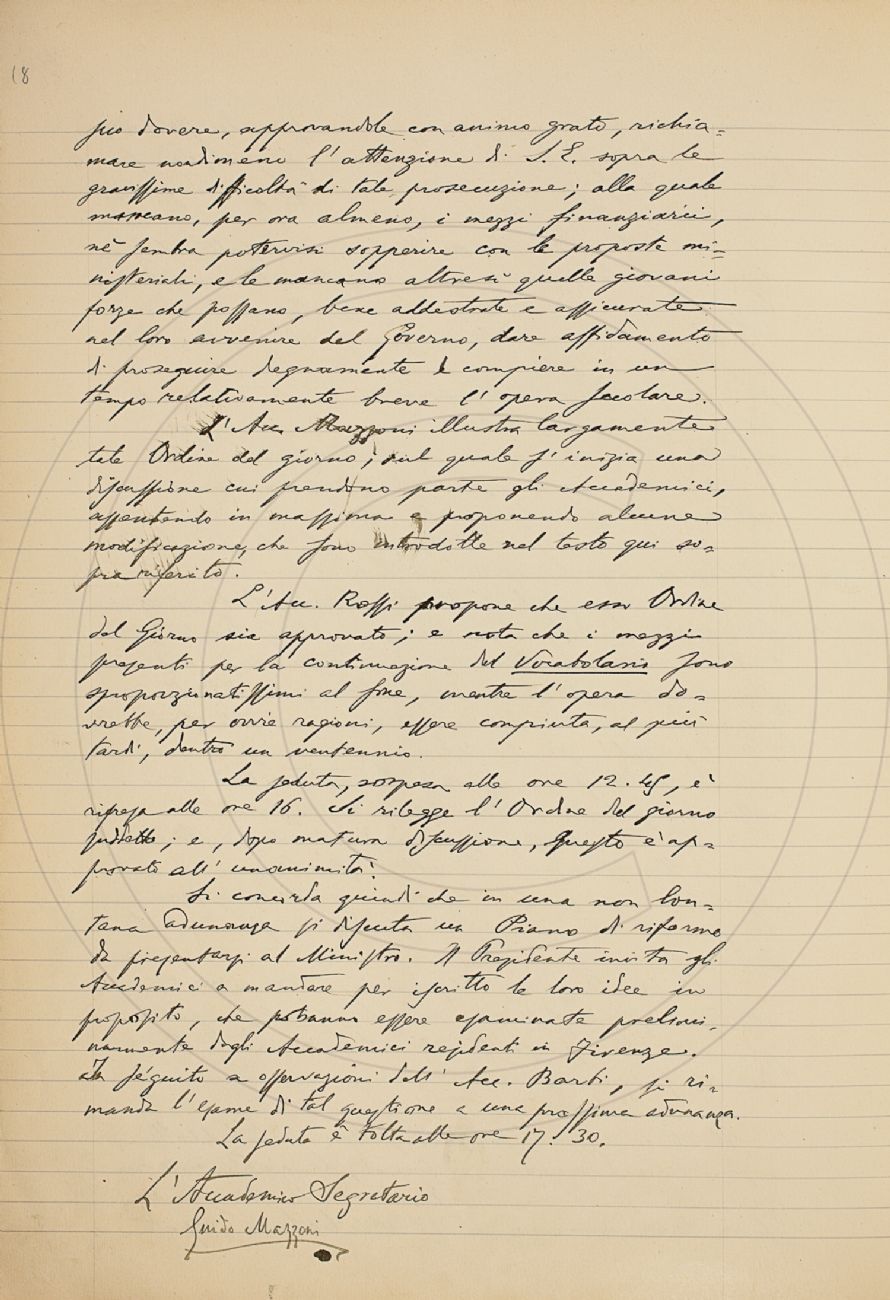 18
suo dovere, approvandole con animo grato, richia=
mare nondimeno l'attenzione di S. E. sopra le
gravissime difficoltà di tale prosecuzione; alla quale
mancano, per ora almeno, i mezzi finanziarii,
nè sembra potervisi sopperire con le proposte mi=
nisteriali, e le mancano altresì quelle giovani
forze che possano, bene addestrate e assicurate
nel loro avvenire dal Governo, dare affidamento
di proseguire degnamente e compiere in un
tempo relativamente breve l'opera secolare.
L'Acc. Mazzoni illustra largamente
tale Ordine del giorno; sul quale s'inizia una
discussione cui prendono parte gli Accademici,
assentendo in massima e proponendo alcune
modificazione, che sono introdotte nel testo qui so=
pra riferito.
L'Acc. Rossi propone che esso Ordine
del Giorno sia approvato; e nota che i mezzi
presenti per la continuazione del Vocabolario sono
sproporzionatissimi al fine, mentre l'opera do=
vrebbe, per ovvie ragioni, essere compiuta, al più
tardi, dentro un ventennio.
La seduta, sospesa alle ore 12.45, è
ripresa alle ore 16. Si rilegge l'Ordine del giorno
suddetto; e, dopo matura discussione, questo è ap=
provato all'unanimità.
Si concorda quindi che in una non lon=
tana adunanza si discuta un Piano di riforme
da presentarsi al Ministro. Il Presidente invita gli
Accademici a mandare per iscritto le loro idee in
proposito, che potranno essere esaminate prelimi=
narmente dagli Accademici residenti in Firenze.
In séguito a osservazioni dell'Acc. Barbi, si ri=
manda l'esame di tal questione a una prossima adunanza.
La seduta è tolta alle ore 17.30.
L'Accademico Segretario
Guido Mazzoni